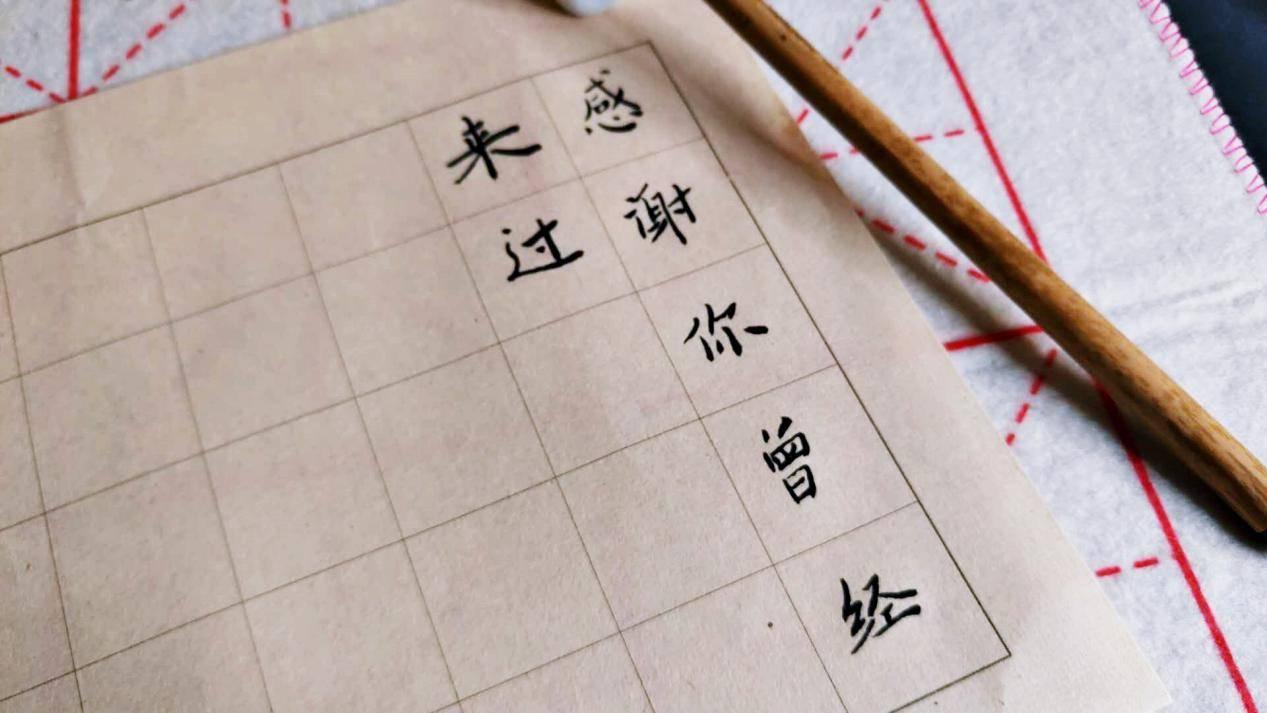 感谢你曾经
来过